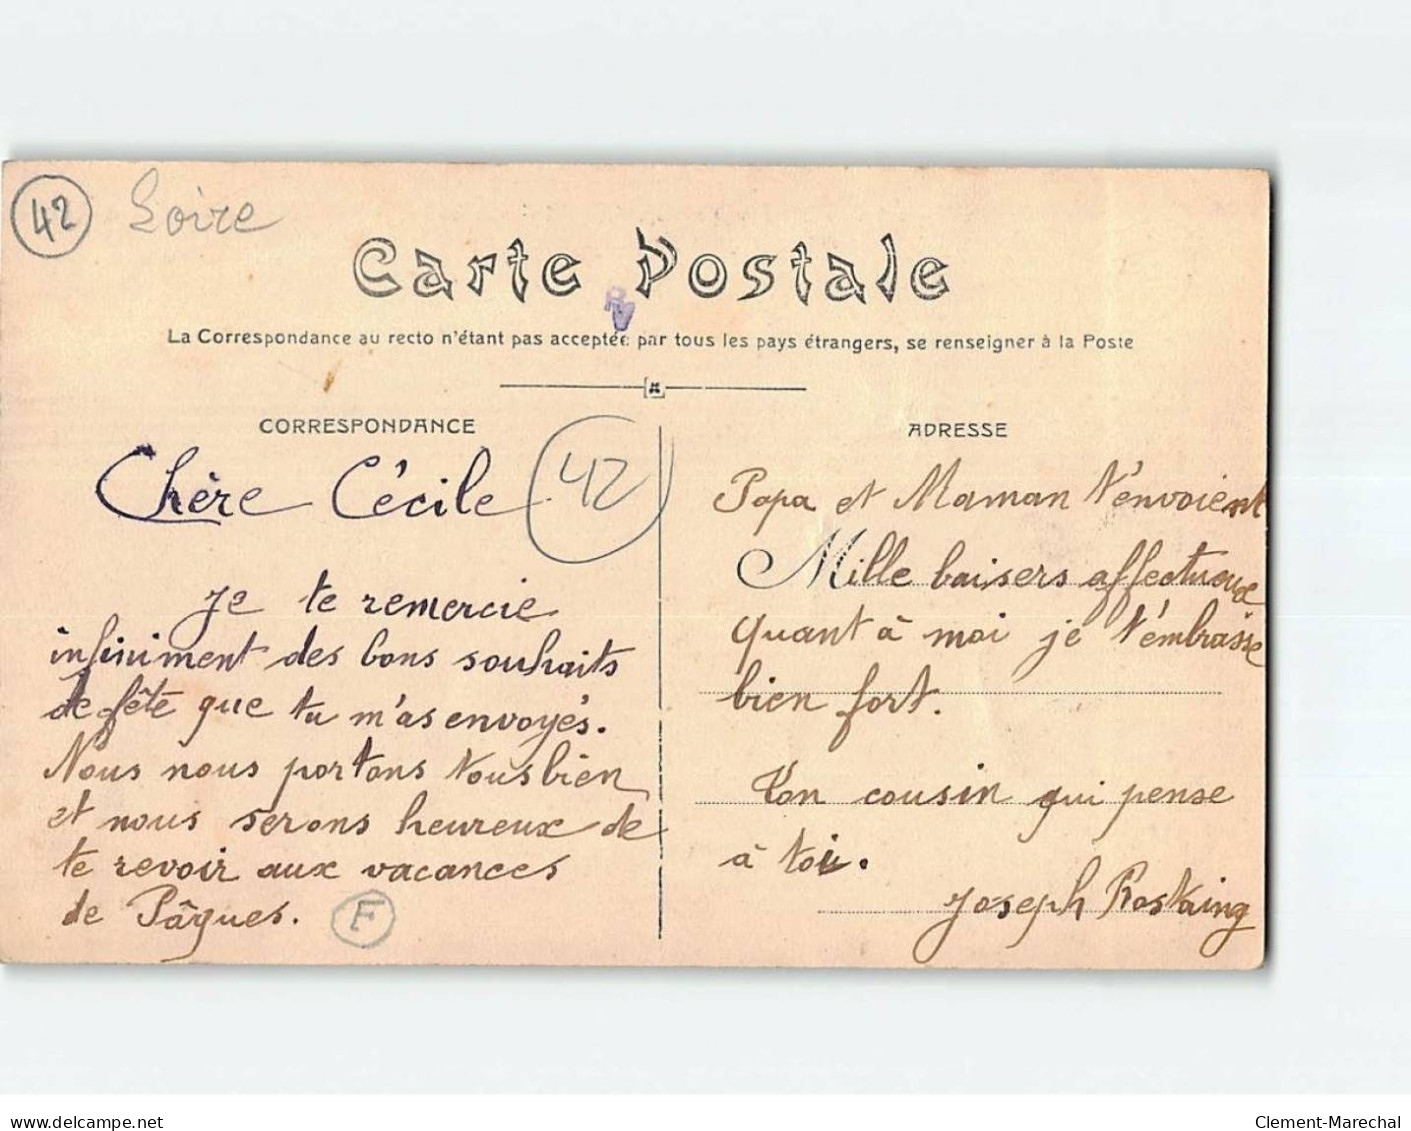 42 Loire
Carte Postale
RV
La Correspondance au recto n'étant pas acceptée par tous les pays étrangers, se renseigner à la Poste
CORRESPONDANCE
Chère Cécile
42
je te remercie
infiniment des bons souhaits
de fête que tu m'as envoyés.
Nous nous portons tous bien
et nous serons heureux de
te revoir aux vacances
de Pâques.
F
ADRESSE
Papa et Maman t'envoient
Mille baisers affectueux
quant à moi je t'embrasse
bien fort.
Ton cousin qui pense
à toi.
Joseph Rostaing
delcampe.net
Clement-Marechal